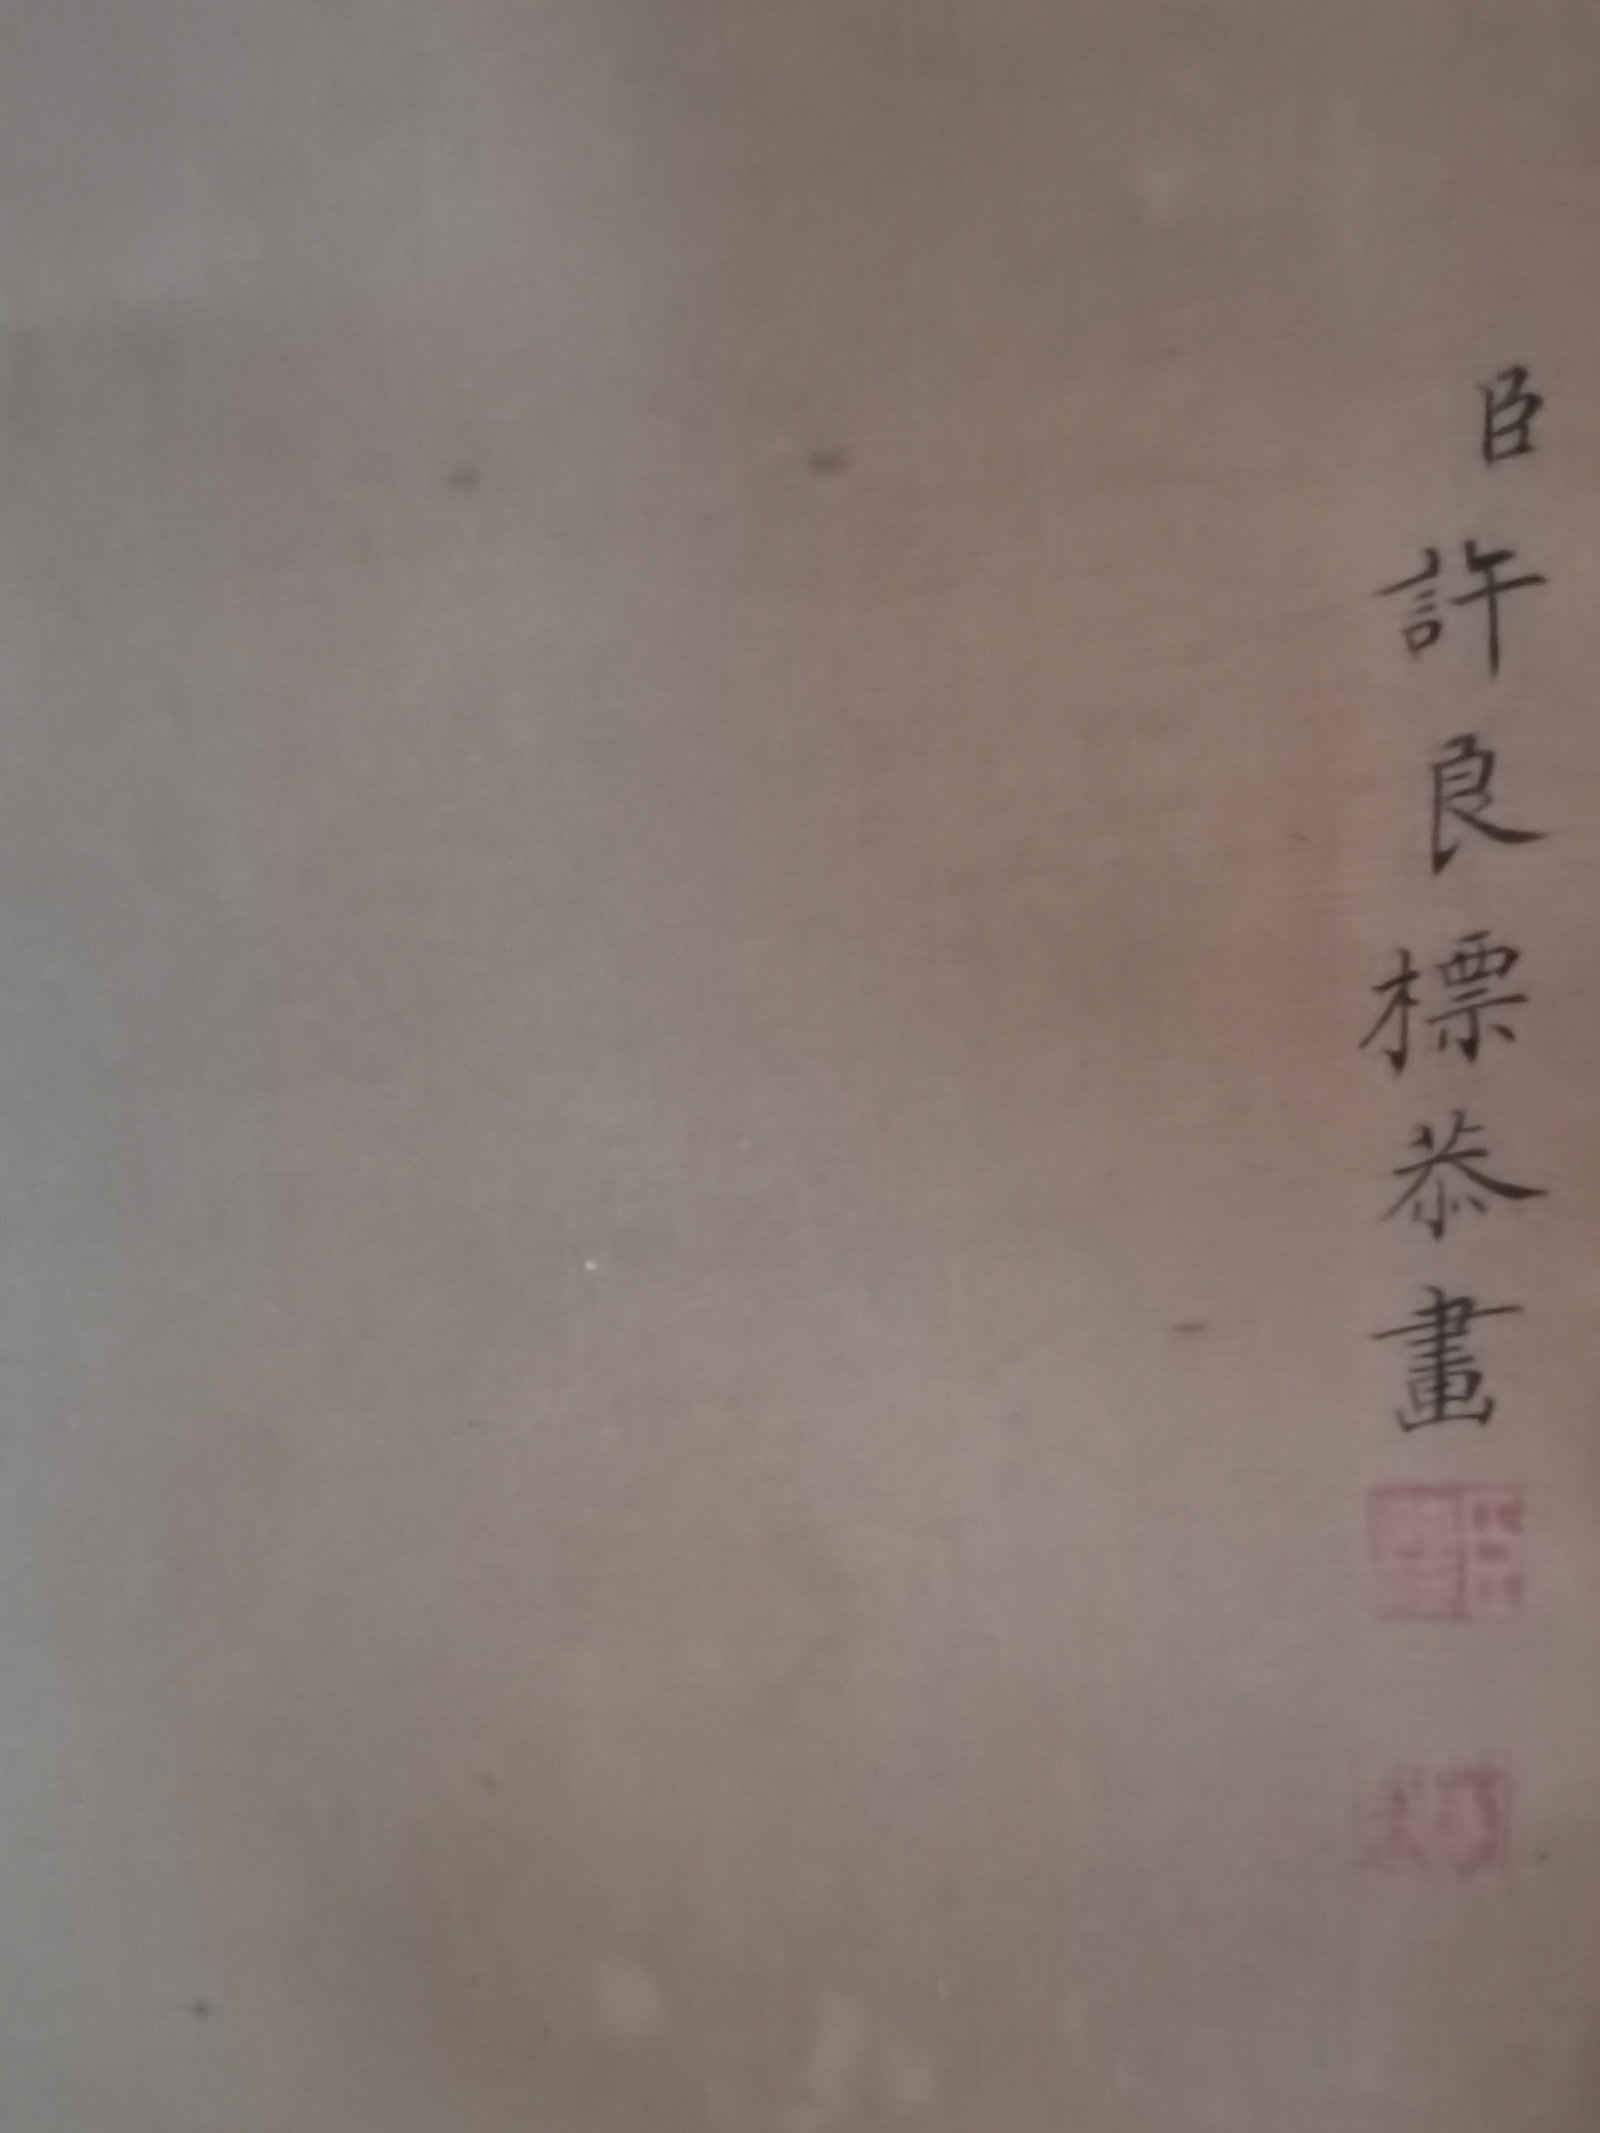 臣許良標恭畫